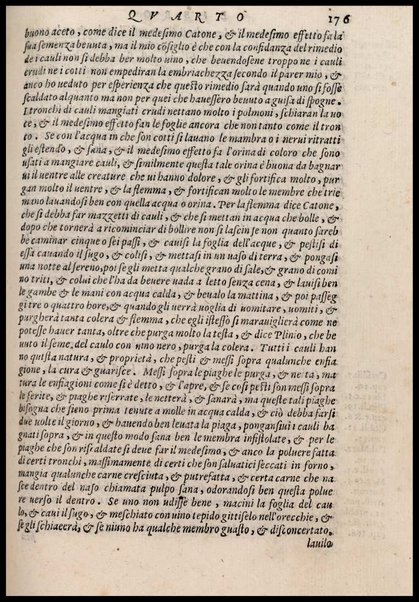 QVARTO 176
buono aceto, come dice il medesimo Catone, & il medesimo effetto fa la
sua semenza beuuta, ma il mio cõsiglio è che con la confidanza del rimedio
de i cauli non si debba ber molto uino, che beuendosene troppo ne i cauli
crudi ne i cotti non empediran la embriachezza secondo il parer mio, &
anco ho ueduto per esperienza che questo rimedio sarà quando uno si fosse
scaldato alquanto ma non per quei che hauessero beuuto a guisa di spogne.
I tronchi di cauli mangiati crudi nettano molto i polmoni, schiaran la uo
ce, & il medesimo effetto fan le foglie ancora che non tanto come il tron
co. Se con l'acqua in che son cotti si lauano le mambra o i nerui ritratti
gli estendo, & sana, & il medesimo effetto fa l'orina di coloro che sono
usati a mangiare cauli, & similmente questa tale orina è buona da bagnar
ui il uentre alle creature che ui hanno dolore, & gli fortifica molto, pur
gan molto il uentre, & la flemma, & fortifican molto le membre che trie
mano lauandosi ben con quella acqua o orina. Per la flemma dice Catone,
che si debba far mazzetti di cauli, & che si mettan in acqua che bolle, &
dopo che tornerà a ricominciar di bollire non si lascin se non quanto sareb
be caminar cinque o sei passi, & cauisi la foglia dell'acque, & pestisi di
essa cauando il sugo, & colisi, & mettasi in un uaso di terra, & pongasi
una notte al sereno, poi se gli metta qualche grano di sale, & grano di comi
no triti, & colui che l'ha da beuere uada a letto senza cena, & lauisi ben
le gambe & le mani con acqua calda, & beualo la mattina, & poi passeg
gi tre o quattro hore, & quando gli uerrà uoglia di uomitare, uomiti, &
purgherà tanta colera & flemma, che egli istesso si marauiglierà come ne
potesse hauer tanta, oltre che purga molto la testa, & dice Plinio, che be
uuto il seme del caulo con uino nero, purga la colera. Tutti i cauli han
no questa natura, & proprietà, che pesti & messi sopra qualunche enfia
gione, la cura & guarisce. Messi sopra le piaghe le purga, & netta, ma
tura le enfiagioni come si è detto, & l'apre, & se cosi pesti son messi sopra
le ferite, & piaghe riserrate, le netterà, & sanarà, ma queste tali piaghe
bisogna che sieno prima tenute a molle in acqua calda, & ciò debba farsi
due uolte il giorno, & hauendo ben leuata la piaga, pongansi i cauli ba
gnati sopra, & in questo modo sana ben le membra infistolate, & per le
piaghe che son riscaldate si deue far il medesimo, & anco la poluere fatta
di certi tronchi, massimamente di certi che son saluatici seccati in forno,
mangia qualunche carne cresciuta, & putrefatta, & certa carne che na
sce dentro del naso chiamata pulpo sana, odorandosi ben questa polue
re uerso il dentro. Se uno non udisse bene, macini la foglia del cau
lo, & caui il sugo, & meschiato con uino tepido gittiselo nell'orecchie, &
se gli schiaeerà, & se niuno ha qualche membro guasto, & disconcertato,
lauilo